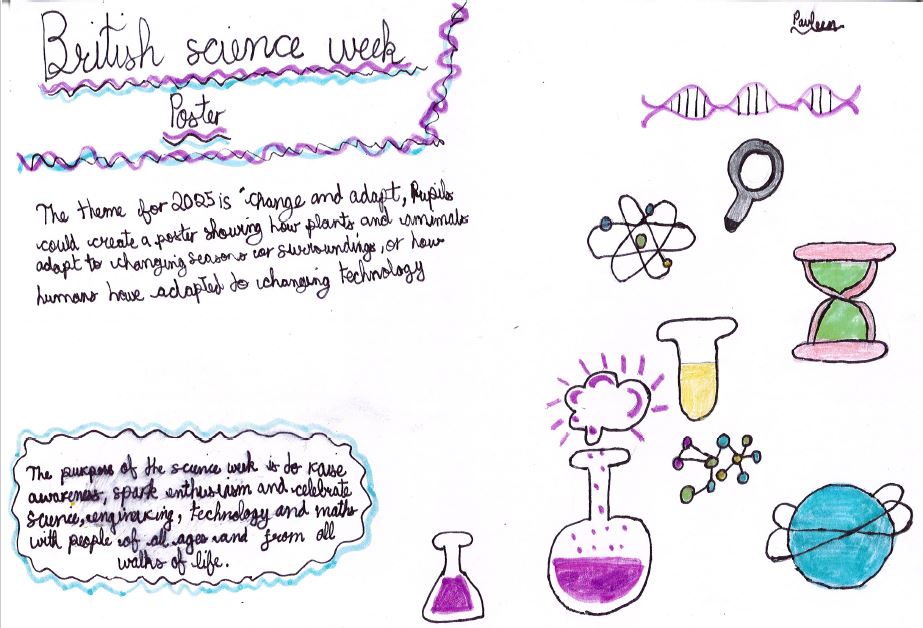 Pavleen
British science week
Poster
The theme for 2025 is "change and adapt, Pupils
could create a poster showing how plants and animals
adapt to changing seasons or surroundings, or how
humans have adapted to changing technology
The purpose of the science week is to raise
awareness, spark enthusiasm and celebrate
science, engineering, technology and maths
with people of all ages and from all
walks of life.